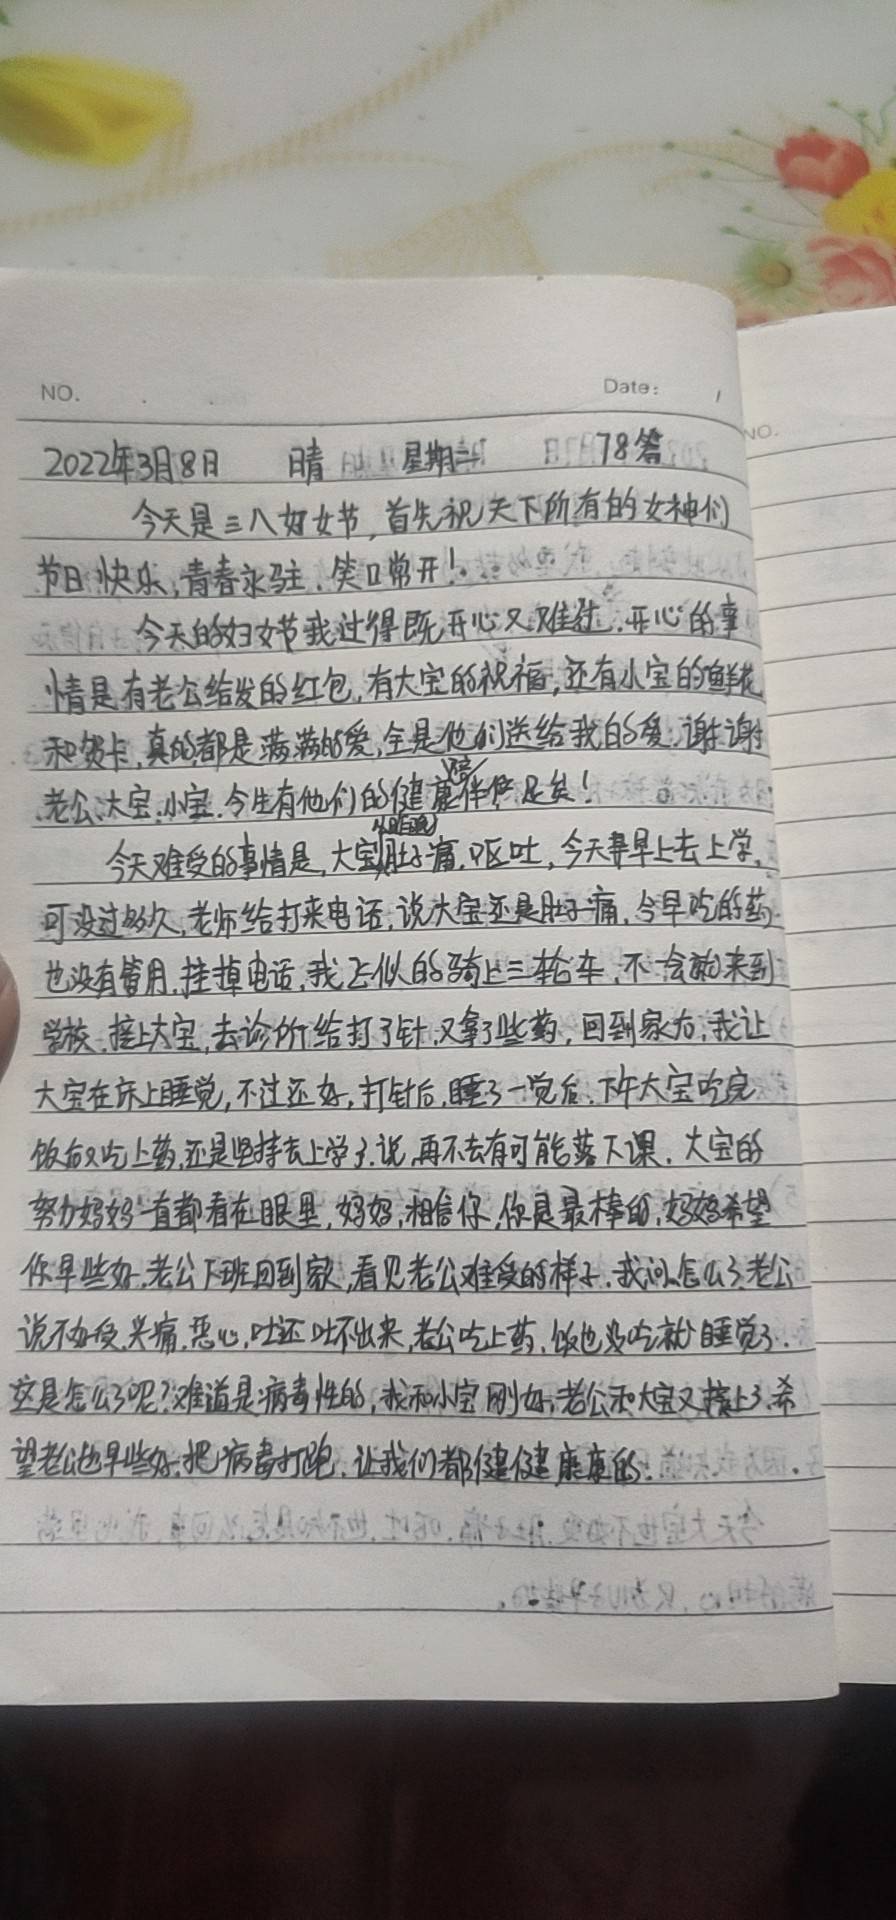 NO.
Date:
NO.
2022年3月8日 晴 星期二 78答
今天是三八妇女节,首先祝天下所有的女神们
节日快乐,青春永驻.笑口常开!
今天的妇女节我过得既开心又难过.开心的事
情是有老公给发的红包,有大宝的祝福,还有小宝的鲜花
和贺卡,真的都是满满的爱,全是他们送给我的爱,谢谢
老公、大宝.小宝.今生有他们的健康陪伴便足矣!
今天难受的事情是,大宝从昨晚肚子痛,呕吐,今天早上去上学,
可没过多久,老师给打来电话,说大宝还是肚子痛,今早吃的药
也没有管用.挂掉电话,我飞似的骑上三轮车,不一会就来到
学校.接上大宝,去诊所给打了针,又拿了些药,回到家后,我让
大宝在床上睡觉,不过还好,打针后,睡了一觉后.下午大宝吃完
饭后又吃上药,还是坚持去上学了.说,再不去有可能落下课.大宝的
努力妈妈一直都看在眼里,妈妈,相信你,你是最棒的,妈妈希望
你早些好.老公下班回到家,看见老公难受的样子.我问怎么了.老公
说不好受.头痛.恶心,吐还吐不出来,老公吃上药,饭也没吃就睡觉了.
这是怎么了呢?难道是病毒性的,我和小宝刚好,老公和大宝又接上了.希
望老公也早些好.把病毒打跑.让我们都健健康康的.